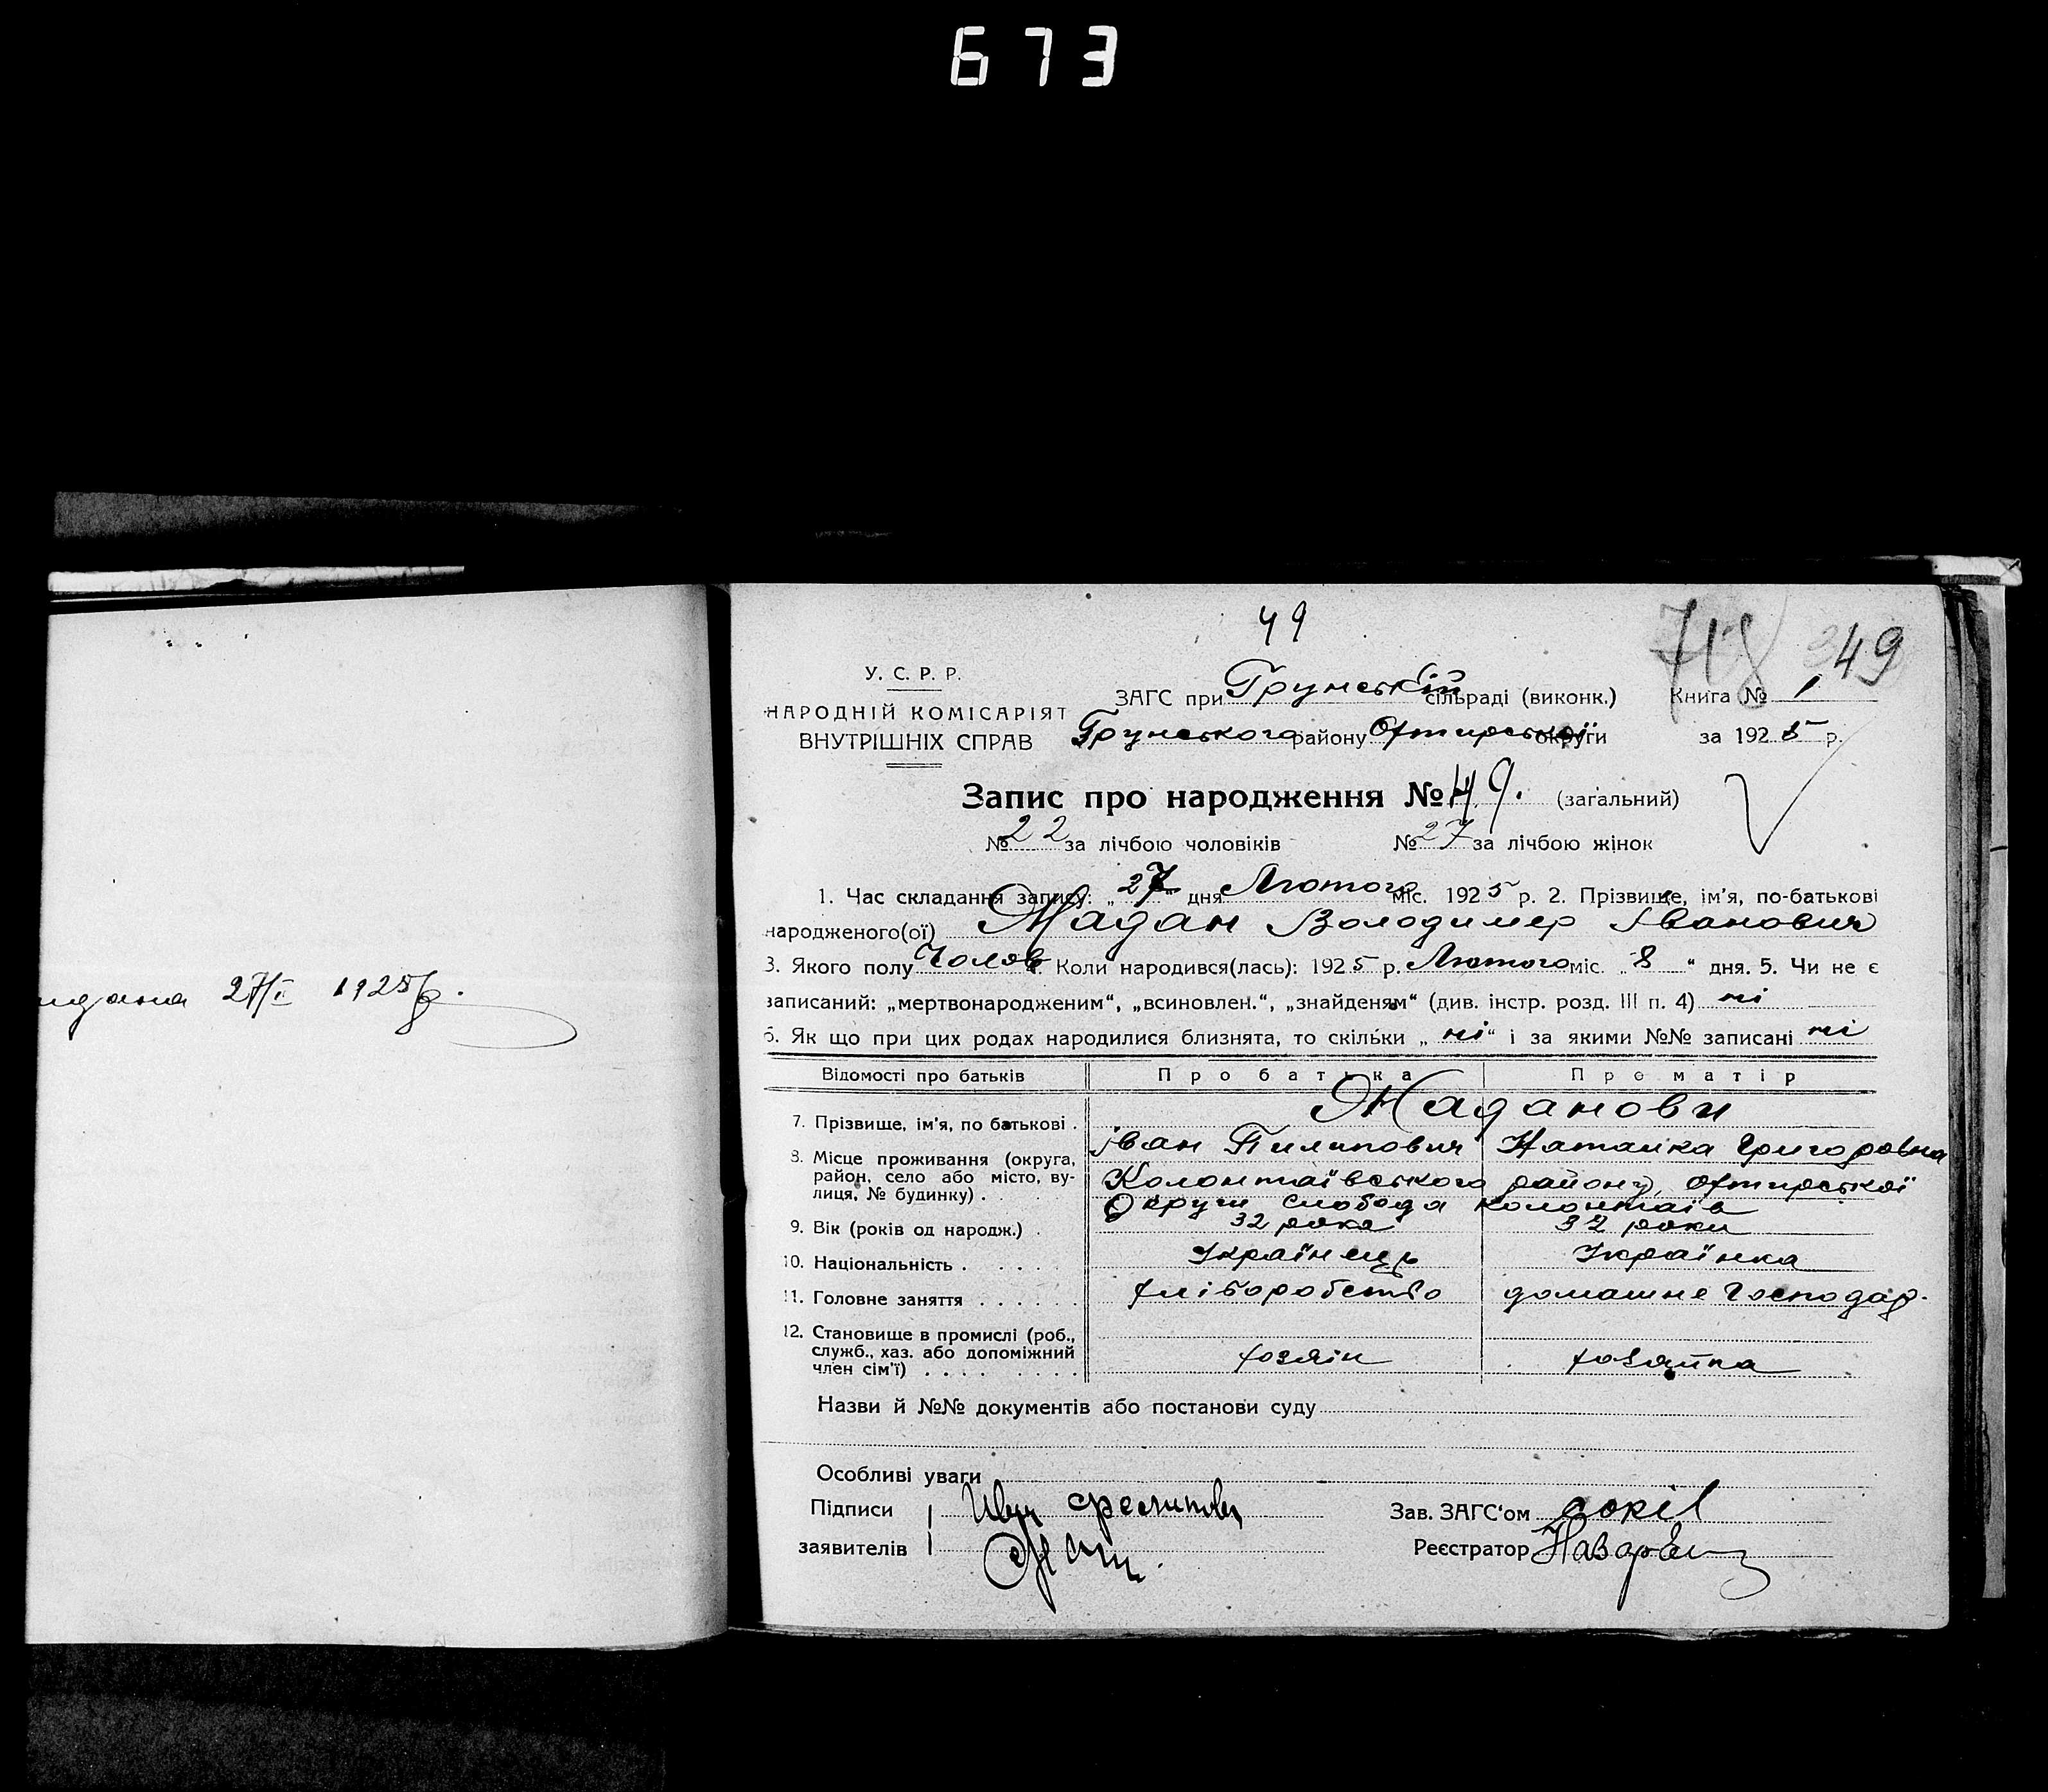 673
49
718 349
У. С. Р. Р.
НАРОДНІЙ КОМІСАРІЯТ
ВНУТРІШНІХ СПРАВ
ЗАГС при Грунській сільраді (виконк.) Книга № 1
Грунського району Охтирської округи за 1925 р.
Запис про народження № 49. (загальний)
№ 22 за лічбою чоловіків № 27 за лічбою жінок
1. Час складання запису: „27" дня Лютого міс. 1925 р. 2. Прізвище, ім'я, по-батькові
народженого(ої) Жадан Володимер Іванович
3. Якого полу Чолов 4. Коли народився(лась): 1925 р. Лютого міс. „8" дня. 5. Чи не є
записаний: „мертвонародженим“, „всиновлен.“, „знайденям“ (див. інстр. розд. III п. 4) ні
6. Як що при цих родах народилися близнята, то скільки „ні“ і за якими №№ записані ні
Відомості про батьків Про батька Про матір
7. Прізвище, ім'я, по батькові . Жаданови
Іван Пилипович Наталка Григоровна
8. Місце проживання (округа, район, село або місто, вулиця, № будинку) . Колонтаївського району, Охтирської
Округи слобода Колонтаїв
9. Вік (років од народж.) . 32 рока 32 роки
10. Національність . Українець Українка
11. Головне заняття . . . . . . хліборобство домашнє Господар.
12. Становище в промислі (роб., служб., хаз. або допоміжний член сім'ї) . . . . хозяін хозяйка
Назви й №№ документів або постанови суду
Особливі уваги
Підписи Зав. ЗАГС'ом Сокіл
заявителів Реєстратор
27/II 1925 р.